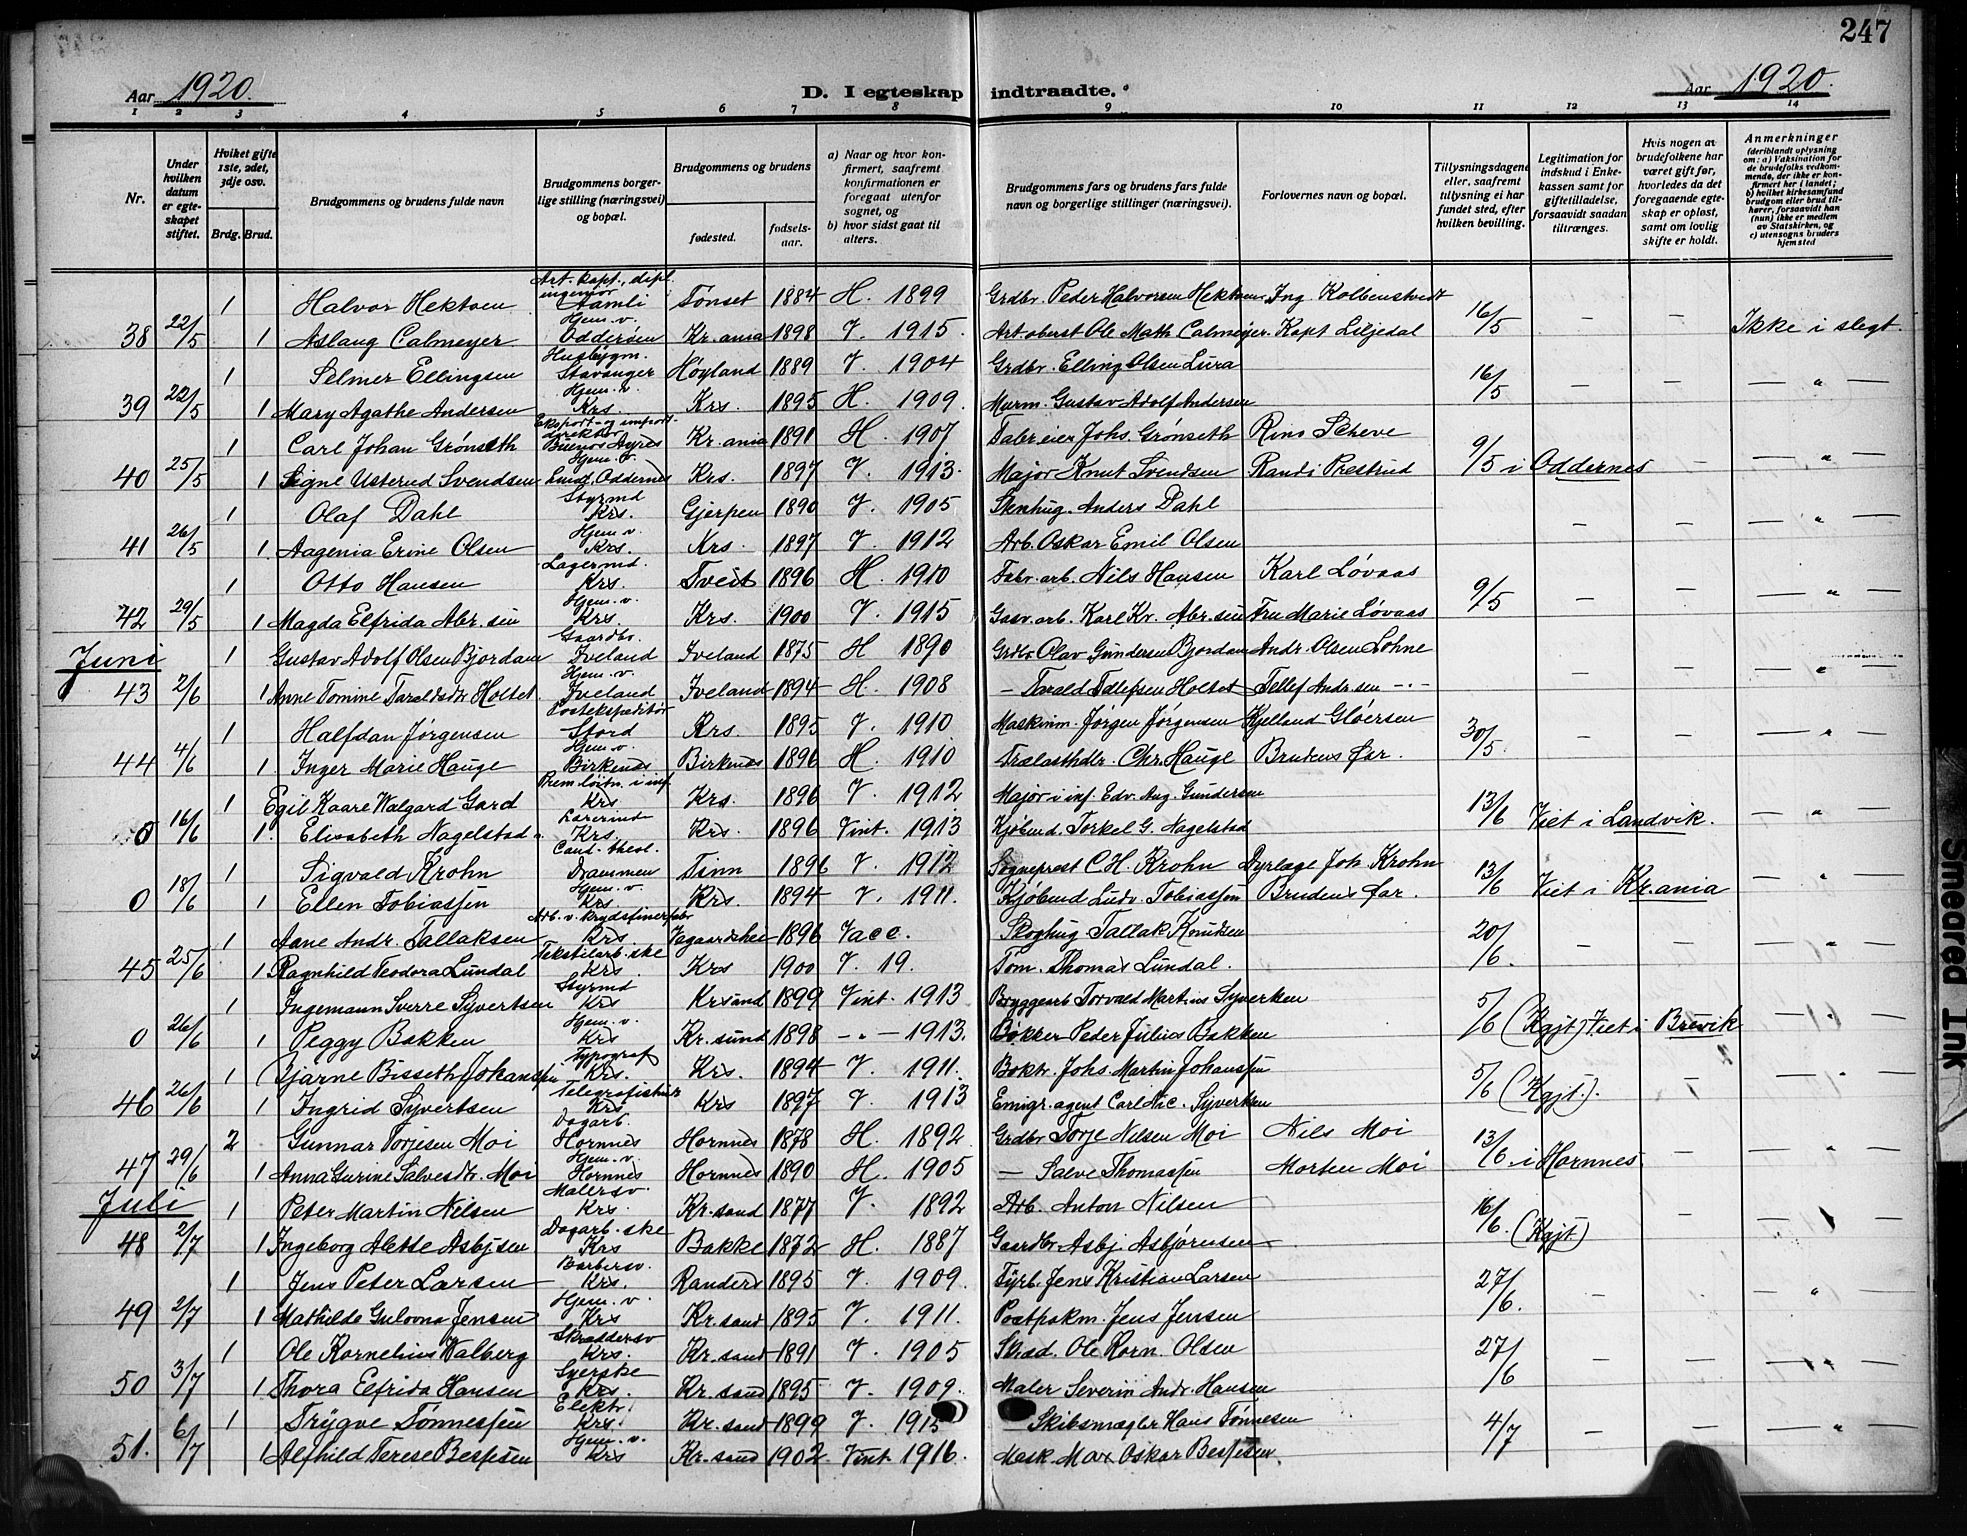 247
Aar 1920.
D. I egteskap indtraadte.
Aar 1920.
1 2 3 4 5 6 7 8 9 10 11 12 13 14
Nr.
Under hvilken datum er egteskapet stiftet.
Hviket gifte 1ste, 2det, 3dje osv.
Brdg. Brud.
Brudgommens og brudens fulde navn
Brudgommens borgerlige stilling (næringsvei) og bopæl.
Brudgommens og brudens
fødested.
fødselsaar.
a) Naar og hvor konfirmert, saafremt konfirmationen er foregaat utenfor sognet, og
b) hvor sidst gaat til alters.
Brudgommens fars og brudens fars fulde navn og borgerlige stillinger (næringsvei).
Forlovernes navn og bopæl.
Tillysningsdagene eller, saafremt tillysning ei har fundet sted, efter hvilken bevilling.
Legitimation for indskud i Enkekassen samt for giftetilladelse, forsaavidt saadan tiltrænges.
Hvis nogen av brudefolkene har været gift før, hvorledes da det foregaaende egteskap er opløst, samt om lovlig skifte er holdt.
Anmerkninger
(deriblandt oplysning om: a) Vaksination for de brudefolks vedkommende, der ikke er konfirmert her i landet; b) hvilket kirkesamfund brudgom eller brud tilhører, forsaavidt han (hun) ikke er medlem av Statskirken, og c) utensogns bruders hjemsted
1 Halvor Hektoen Art. kapt., dipl. ingeniør Aamli Tønset 1884 H. 1899 Grdbr. Peder Halvorsen Hektoen Ing. Kolbenstvedt
38 22/5 1 Aslaug Calmeyer Hjem. v. Odderøen Kr.ania 1898 V. 1915. Art. oberst Ole Math Calmeyer. Kapt Liljedal 16/5 – – Ikke i slegt
1 Selmer Ellingsen Husbygm. Stavanger Høyland 1889 V. 1904 Grdbr. Elling Olsen Lura
39 22/5 1 Mary Agathe Andersen Hjem. v. Krs. Krs. 1895 H. 1909. Murm. Gustav Adolf Andersen 16/5 – – — " —
1 Carl Johan Grønseth Eksport- og import- direktør Buenos Ayres Kr.ania 1891 H. 1907 Fabr.eier Johs. Grønseth Rino Scheve
40 25/5 1 Signe Usterud Svendsen Hjem. v. Lund, Oddernes Krs. 1897 V. 1913. Major Knut Svendsen Randi Prestrud 9/5 i Oddernes – — " —
1 Olaf Dahl Styrmd Krs. Gjerpen 1890 V. 1905 Stenhug. Anders Dahl
41 26/5 1 Aagenia Erine Olsen Hjem v. Krs. Krs. 1897 V. 1912 Arb. Oskar Emil Olsen – – — " —
1 Otto Hansen Lagermd. Krs. Tveit 1896 H. 1910 Fabr. arb. Nils Hansen Karl Løvaas
42 29/5 1 Magda Elfrida Abr.sen Hjem. v. Krs. Krs. 1900 V. 1915 Gasv. arb. Karl Kr. Abr.sen Fru Marie Løvaas 9/5 – – — " —
Juni
1 Gustav Adolf Olsen Bjordam Gaardbr. Iveland Iveland 1875 H 1890 Grdbr Olav Gundersen Bjordam Andr. Olsen Lohne
43 2/6 1 Anne Tomine Taraldsdr Holtet. Hjem. v. Iveland Iveland 1894 H. 1908 – Tarald Tellefsen Holtet Tellef Andr.sen – " – – – — " —
1 Halfdan Jørgensen Postekspeditør Stord Krs. 1895 V. 1910 Maskinm. Jørgen Jørgensen Kjelland Gløersen
44 4/6 1 Inger Marie Hauge Hjem v. Birkenes Birkenes 1896 H. 1910 Trælasthdlr. Chr. Hauge Brudens far. 30/5. – – — " —
1 Egil Kaare Walgard Gard Prem.løitn. i inf. Krs Krs. 1896 V. 1912 Major i inf. Edv. Aug. Gundersen
0 16/6 1 Elisabeth Nagelstad Lærerind Krs. Krs. 1896 Vint. 1913 Kjøbmd. Torkel G. Nagelstad 13/6 Viet i Landvik. – — " —
1 Sigvald Krohn Cand. theol. Drammen Tinn 1896 V. 1912 Sogneprest C. H. Krohn Dyrlæge Joh. Krohn
0 18/6 1 Ellen Tobiassen Hjem. v. Krs. Krs. 1894 V. 1911. Kjøbmd Ludv. Tobiassen Brudens far. 13/6 Viet i Kr.ania – — " —
1 Aane Andr. Tallaksen Arb. v. Krydsfinerfabr Krs. Vegaardshei 1896 Vacc. Skoghug Tallak Knudsen
45 25/6 1 Ragnhild Teodora Lundal Tekstilarb.ske Krs. Krs 1900 V. 19. Tøm. Thomas Lundal. 20/6. – – — " —
1 Ingemann Sverre Syvertsen Styrmd Krs Krsand 1899 Vint. 1913 Bryggearb Torvald Martius Syvertsen
0 26/6 1 Peggy Bakken Hjem. v. Krs Kr.sund 1898 – " – 1913. Bøkker Peder Julius Bakken 5/6 (Kgjt) Viet i Brevik
1 Bjarne Bisseth Johanssen Typograf Krs. Krs. 1894 V. 1911. Boktr. Johs. Martin Johanssen
46 26/6 1 Ingrid Syvertsen Krs Krs 1897 V. 1913 Emigr. agent Carl Nic. Syvertsen 5/6 (Kgjt.). – — " —
2 Gunnar Torjesen Moi Dagarb. Hornnes Hornnes 1878 H. 1892. Grdbr Torje Nilsen Moi Nils Moi
47 29/6 1 Anna Gurine Salvesdr. Moi Hjem. v. Hornnes Hornnes 1890 H. 1905 – Salve Thomassen Morten Moi 13/6. i Hornnes. – — " —
Juli
1 Peter Martin Nilsen Malersv. Krs. Kr.sand 1877 V. 1892 Arb. Anton Nilsen
48 2/7 1 Ingeborg Alette Asbj.sen Dagarb.ske Krs Bakke 1872 H. 1887 Gaardbr Asbj. Asbjørnsen 16/6. (Kgjt) – — " —
1 Jens Peter Larsen Barbersv. Krs. Randers 1895 V. 1909. Fyrb. Jens Kristian Larsen
49 2/7 1 Mathilde Gulovna Jensen Hjem. v. Krs Kr.sand 1895 V. 1911. Postpakm. Jens Jensen 27/6. – – — " —
1 Ole Kornelius Walberg Skræddersv Krs. Kr.sand 1891 V. 1905 Skræd. Ole Korn. Olsen
50 3/7 1 Thora Elfrida Hansen Syerske Krs. Kr.sand 1895 V. 1909. Maler Severin Andr. Hansen 27/6 – – — " —
1 Trygve Tønnessen Elektr. Krs. Kr.sand 1899 V. 1915 Skibsmægler Hans Tønnesen
51. 6/7 1 Alfhild Terese Bessesen Hjem. v. Krs Kr.sand 1902. Vint. 1916. Mask. Max Oskar Bessesen. 4/7 – – — " —
Smeared Ink